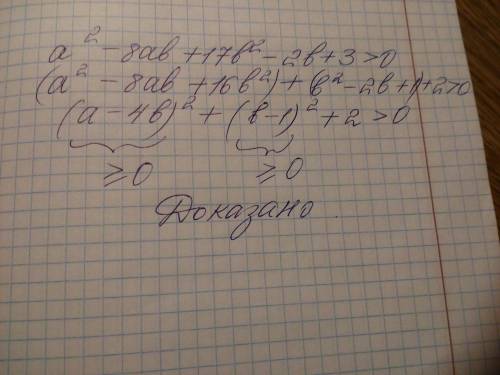 a² - 8ab + 17b² - 2b + 3 > 0
(a² - 8ab + 16b²) + (b² - 2b + 1) + 2 > 0
(a - 4b)² + (b - 1)² + 2 > 0
⩾ 0 ⩾ 0
Доказано.